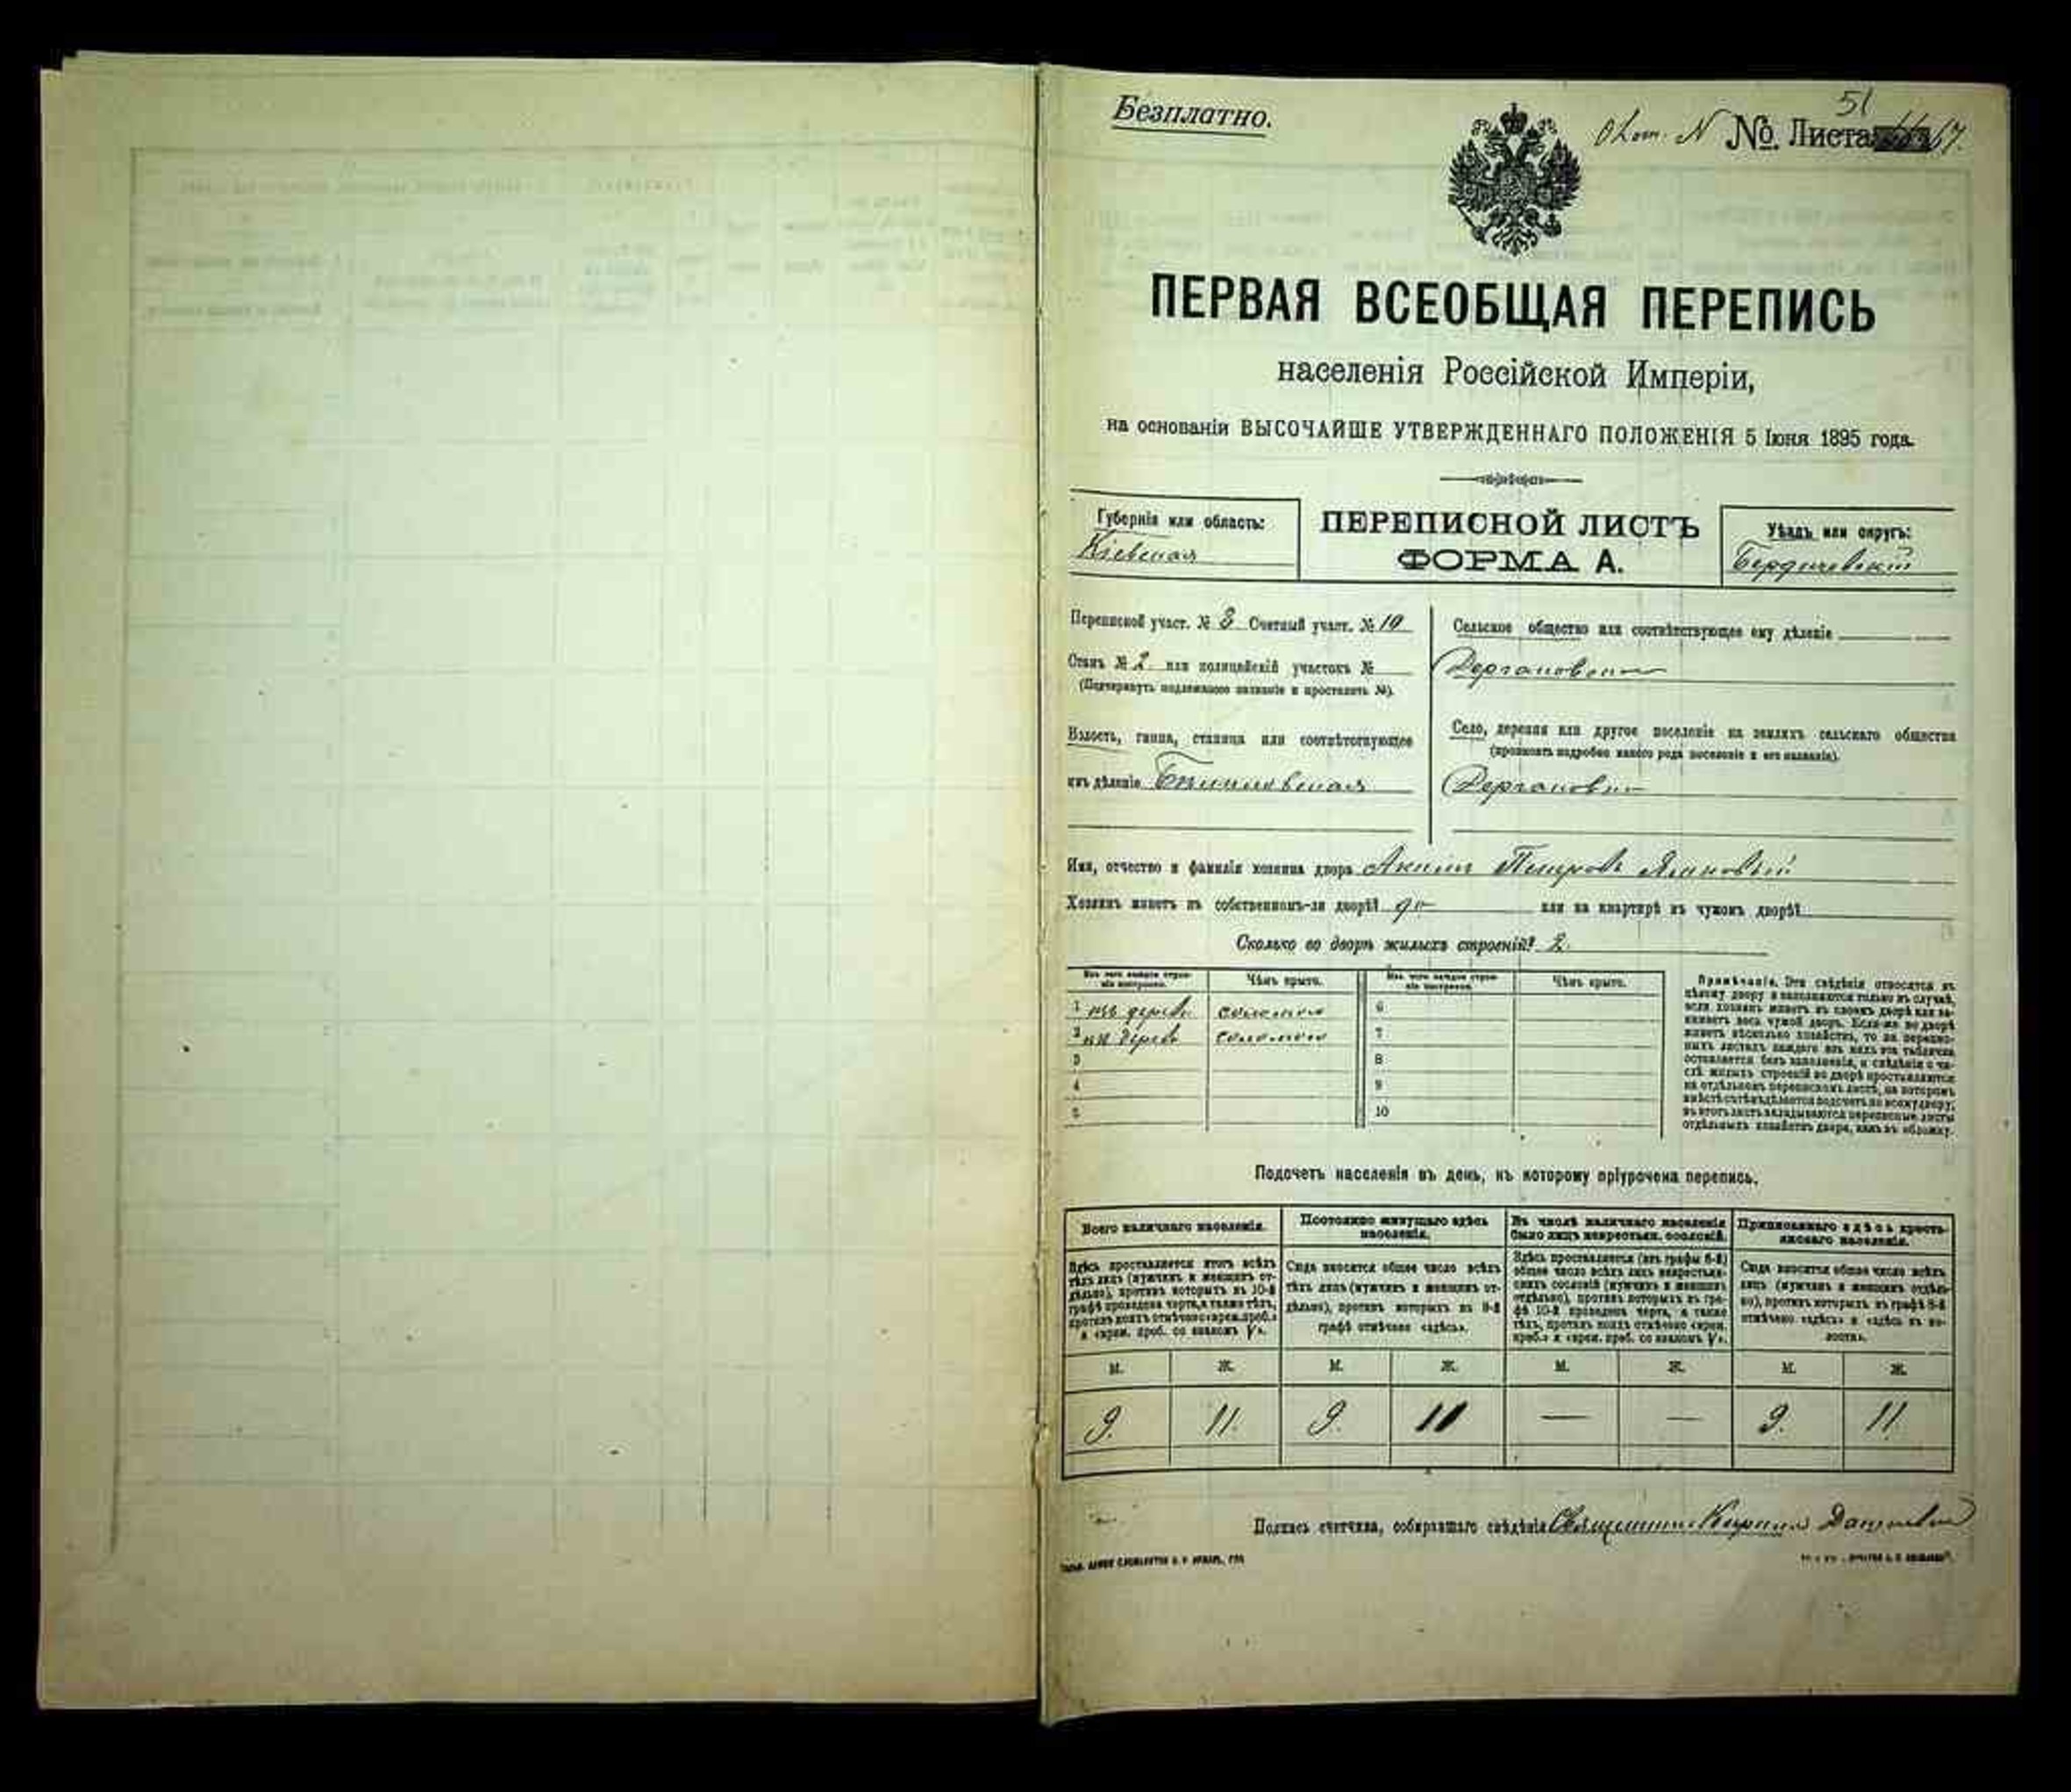 Безплатно.
51
№ Листа 67.
ПЕРВАЯ ВСЕОБЩАЯ ПЕРЕПИСЬ
населенія Россійской Имперіи,
на основаніи ВЫСОЧАЙШЕ УТВЕРЖДЕННАГО ПОЛОЖЕНІЯ 5 Іюня 1895 года.
Губернія или область:
Кіевская
ПЕРЕПИСНОЙ ЛИСТЪ
ФОРМА А.
Уѣздъ или округъ:
Бердичевскій
Переписной участ. № 3 Счетный участ. № 10
Станъ № 2 или полицейскій участокъ №
(Подчеркнуть подлежащее названіе и проставить №).
Волость, гмина, станица или соотвѣтствующее
имъ дѣленіе
Сельское общество или соотвѣтствующее ему дѣленіе
Село, деревня или другое поселеніе на земляхъ сельскаго общества
(прописать подробно какого рода поселеніе и его названіе).
Имя, отчество и фамилія хозяина двора Акимъ Петровъ
Хозяинъ живетъ въ собственномъ-ли дворѣ? да или на квартирѣ въ чужомъ дворѣ?
Сколько во дворѣ жилыхъ строеній? 2.
Изъ чего каждое строеніе построено. Чѣмъ крыто. Изъ чего каждое строеніе построено. Чѣмъ крыто.
1 изъ дерева соломою 6
2 изъ дерева соломою 7
3 8
4 9
5 10
Примѣчаніе. Эти свѣдѣнія относятся къ
цѣлому двору и заполняются только въ случаѣ,
если хозяинъ живетъ въ своемъ дворѣ или за-
нимаетъ весь чужой дворъ. Если-же во дворѣ
живетъ нѣсколько хозяйствъ, то на перепис-
ныхъ листахъ каждаго изъ нихъ эта табличка
оставляется безъ заполненія, и свѣдѣнія о чи-
слѣ жилыхъ строеній во дворѣ проставляются
на отдѣльномъ переписномъ листѣ, на которомъ
вмѣстѣ съ тѣмъ дѣлается подсчетъ по всему двору;
въ этотъ листъ вкладываются переписные листы
отдѣльныхъ хозяйствъ двора, какъ въ обложку.
Подсчетъ населенія въ день, къ которому пріурочена перепись.
Всего наличнаго населенія.
Здѣсь проставляется итогъ всѣхъ
тѣхъ лицъ (мужчинъ и женщинъ от-
дѣльно), противъ которыхъ въ 10-й
графѣ проведена черта, а также тѣхъ,
противъ коихъ отмѣчено «врем. преб.»
и «врем. преб. со знакомъ V».
Постоянно живущаго здѣсь
населенія.
Сюда вносится общее число всѣхъ
тѣхъ лицъ (мужчинъ и женщинъ от-
дѣльно), противъ которыхъ въ 9-й
графѣ отмѣчено «здѣсь».
Въ числѣ наличнаго населенія
было лицъ некрестьян. сословій.
Здѣсь проставляется (изъ графы 6-й)
общее число всѣхъ лицъ некрестьян-
скихъ сословій (мужчинъ и женщинъ
отдѣльно), противъ которыхъ въ гра-
фѣ 10-й проведена черта, а также
тѣхъ, противъ коихъ отмѣчено «врем.
преб.» и «врем. преб. со знакомъ V».
Приписаннаго здѣсь кресть-
янскаго населенія.
Сюда вносится общее число всѣхъ
лицъ (мужчинъ и женщинъ отдѣль-
но), противъ которыхъ въ графѣ 8-й
отмѣчено «здѣсь» и «здѣсь въ во-
лости».
М. Ж. М. Ж. М. Ж. М. Ж.
9. 11. 9. 11 — — 9. 11.
Подпись счетчика, собиравшаго свѣдѣнія Священникъ Кириллъ